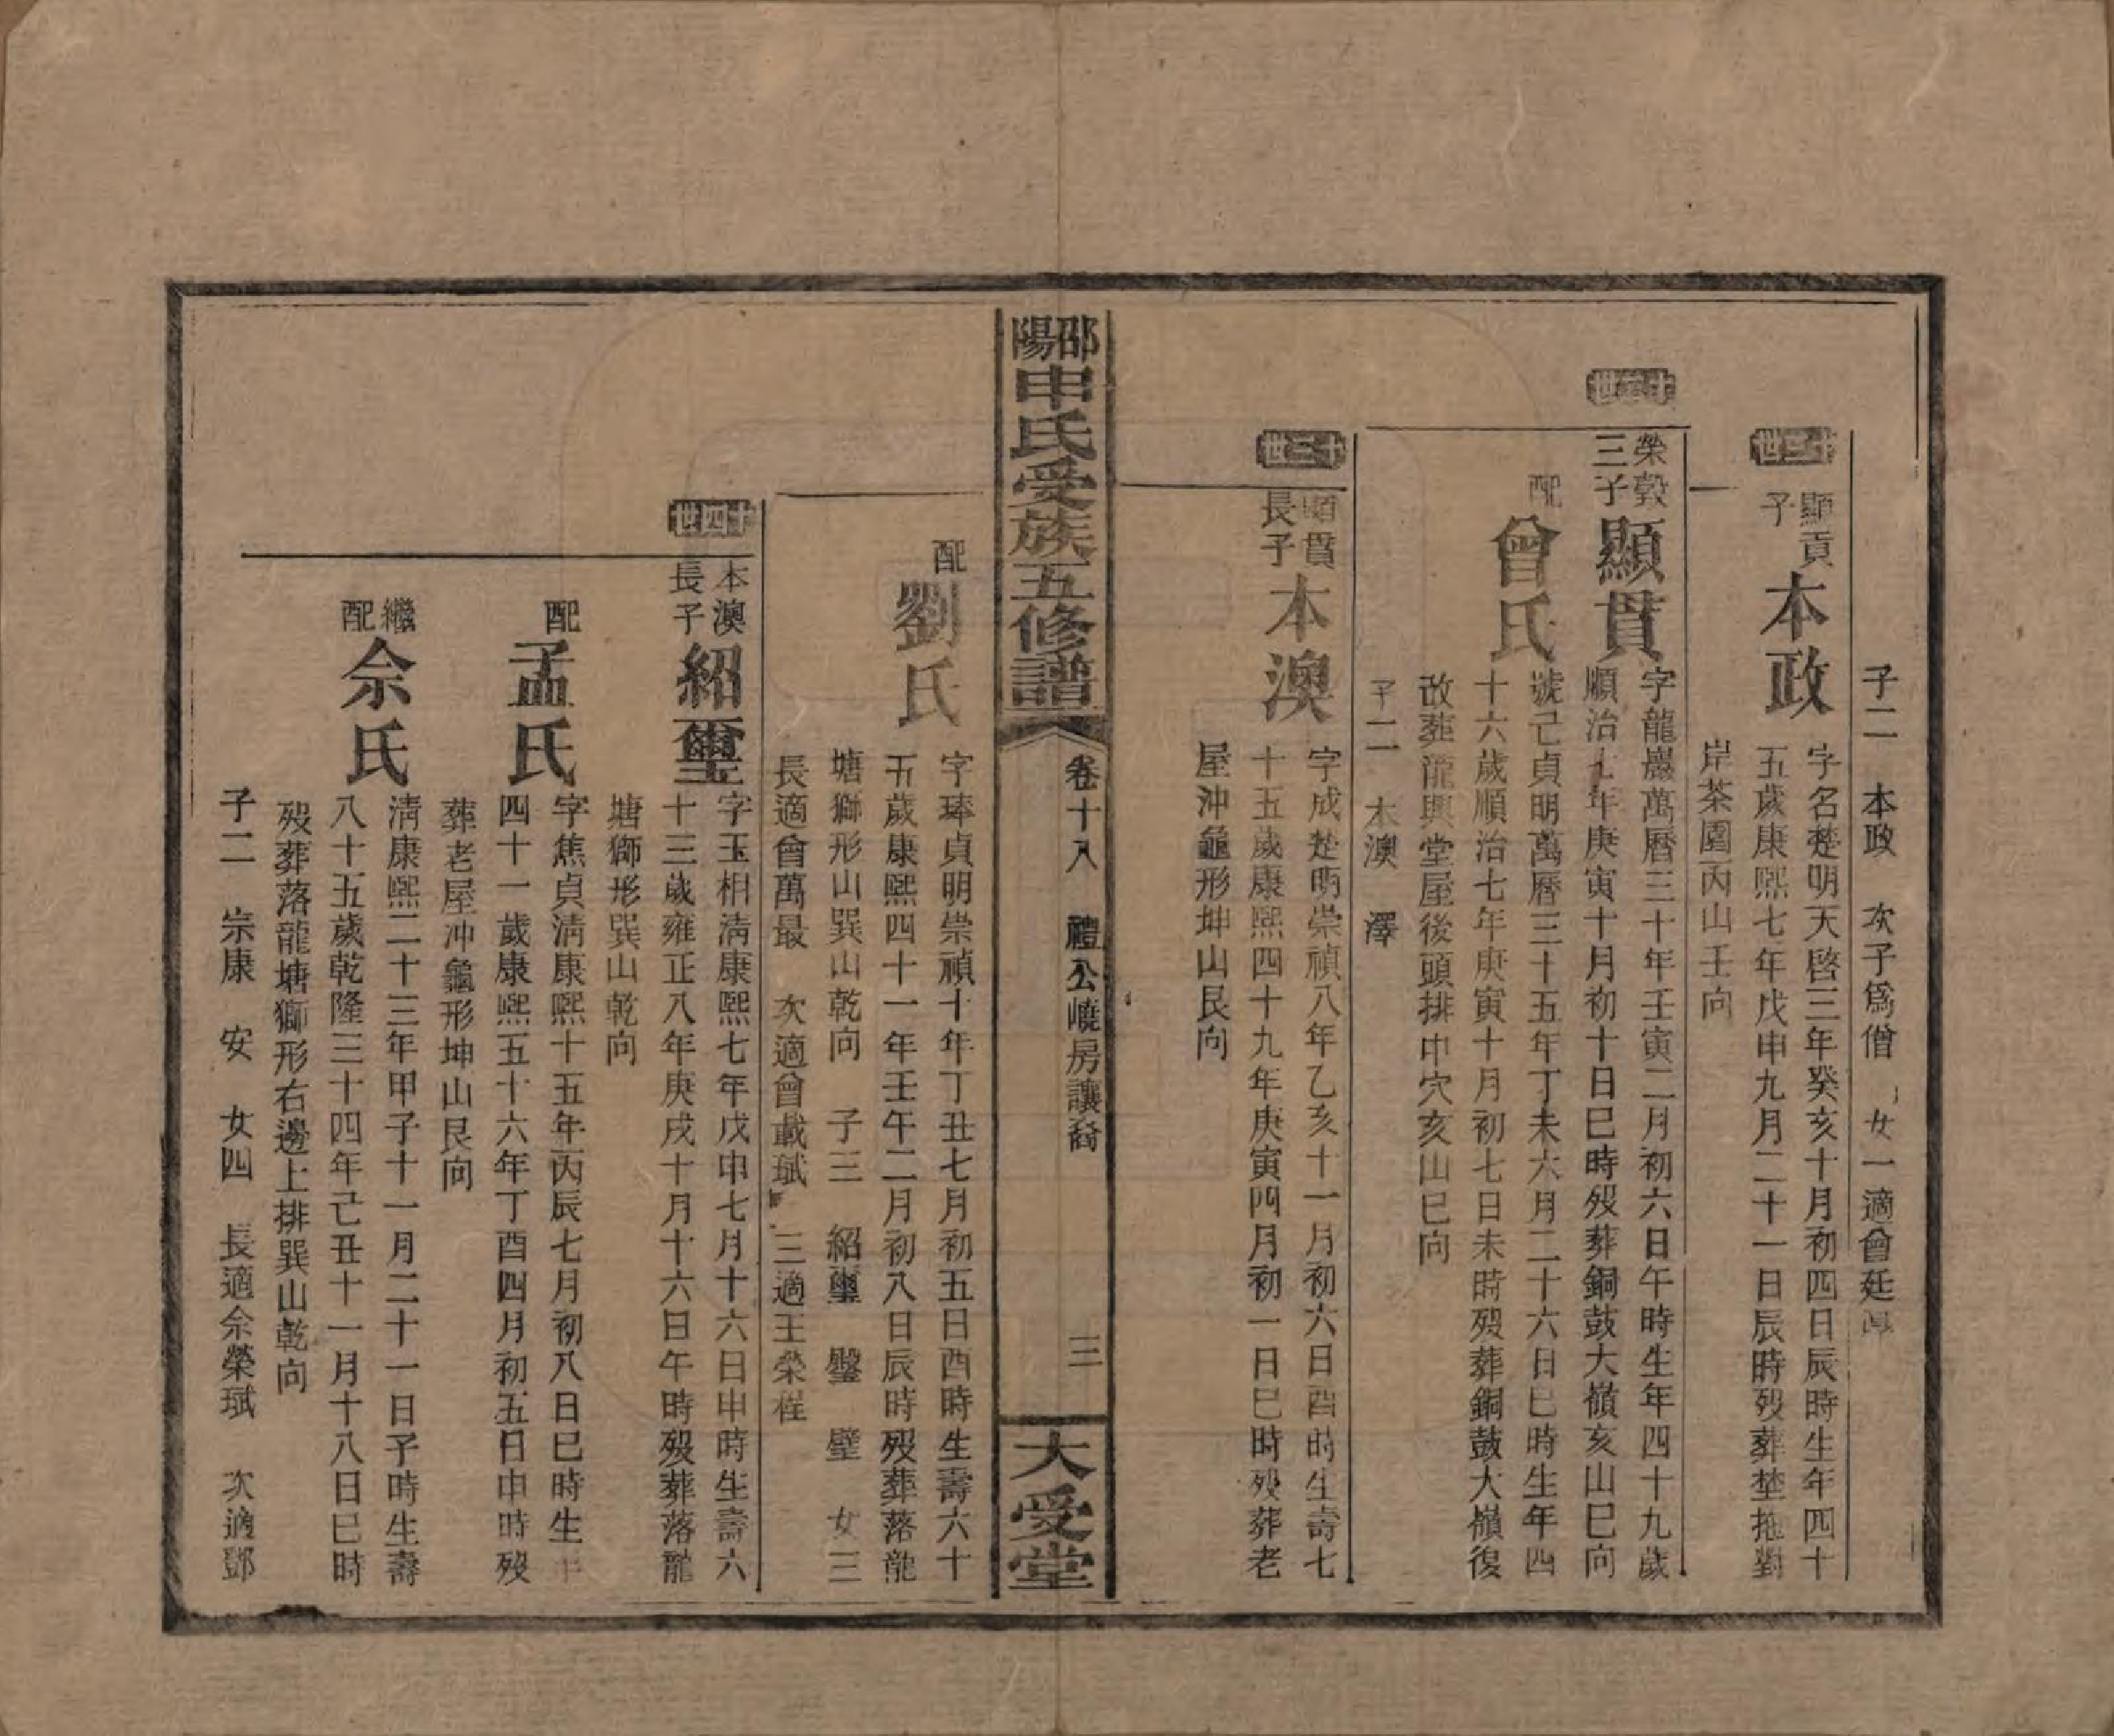 子二　本政　次子爲僧　女一適曾廷
十三世
顯貢
子
本政
字名楚明天啓三年癸亥十月初四日辰時生年四十
五歲康熙七年戊申九月二十一日辰時殁葬埜拖對
岸茶園丙山壬向
十二世
榮彀
三子
顯貫
字龍巖萬曆三十年壬寅二月初六日午時生年四十九歲
順治七年庚寅十月初十日巳時殁葬銅鼓大嶺亥山巳向
配
曾氏
號己貞明萬曆三十五年丁未六月二十六日巳時生年四
十六歲順治七年庚寅十月初七日未時殁葬銅鼓大嶺復
改葬龍興堂屋後頭排中穴亥山巳向
子二　本澳　澤
十三世
顯貫
長子
本澳
字成楚明崇禎八年乙亥十一月初六日酉時生壽七
十五歲康熙四十九年庚寅四月初一日巳時殁葬老
屋沖龜形坤山艮向
邵陽申氏受族五修譜
卷十八　禮公嶢房讓裔
三
大受堂
配
劉氏
字琫貞明崇禎十年丁丑七月初五日酉時生壽六十
五歲康熙四十一年壬午二月初八日辰時殁葬落龍
塘獅形山巽山乾向　子三　紹璽　鑿　璧　女三
長適曾萬最　次適曾載珷　三適王榮桂
十四世
本澳
長子
紹璽
字玉相清康熙七年戊申七月十六日申時生壽六
十三歲雍正八年庚戌十月十六日午時殁葬落龍
塘獅形巽山乾向
配
孟氏
字焦貞淸康熙十五年丙辰七月初八日巳時生年
四十一歲康熙五十六年丁酉四月初五日申時殁
葬老屋沖龜形坤山艮向
繼配
佘氏
淸康熙二十三年甲子十一月二十一日子時生壽
八十五歲乾隆三十四年己丑十一月十八日巳時
殁葬落龍塘獅形右邊上排巽山乾向
子二　宗康　安　女四　長適佘榮珷　次適鄧